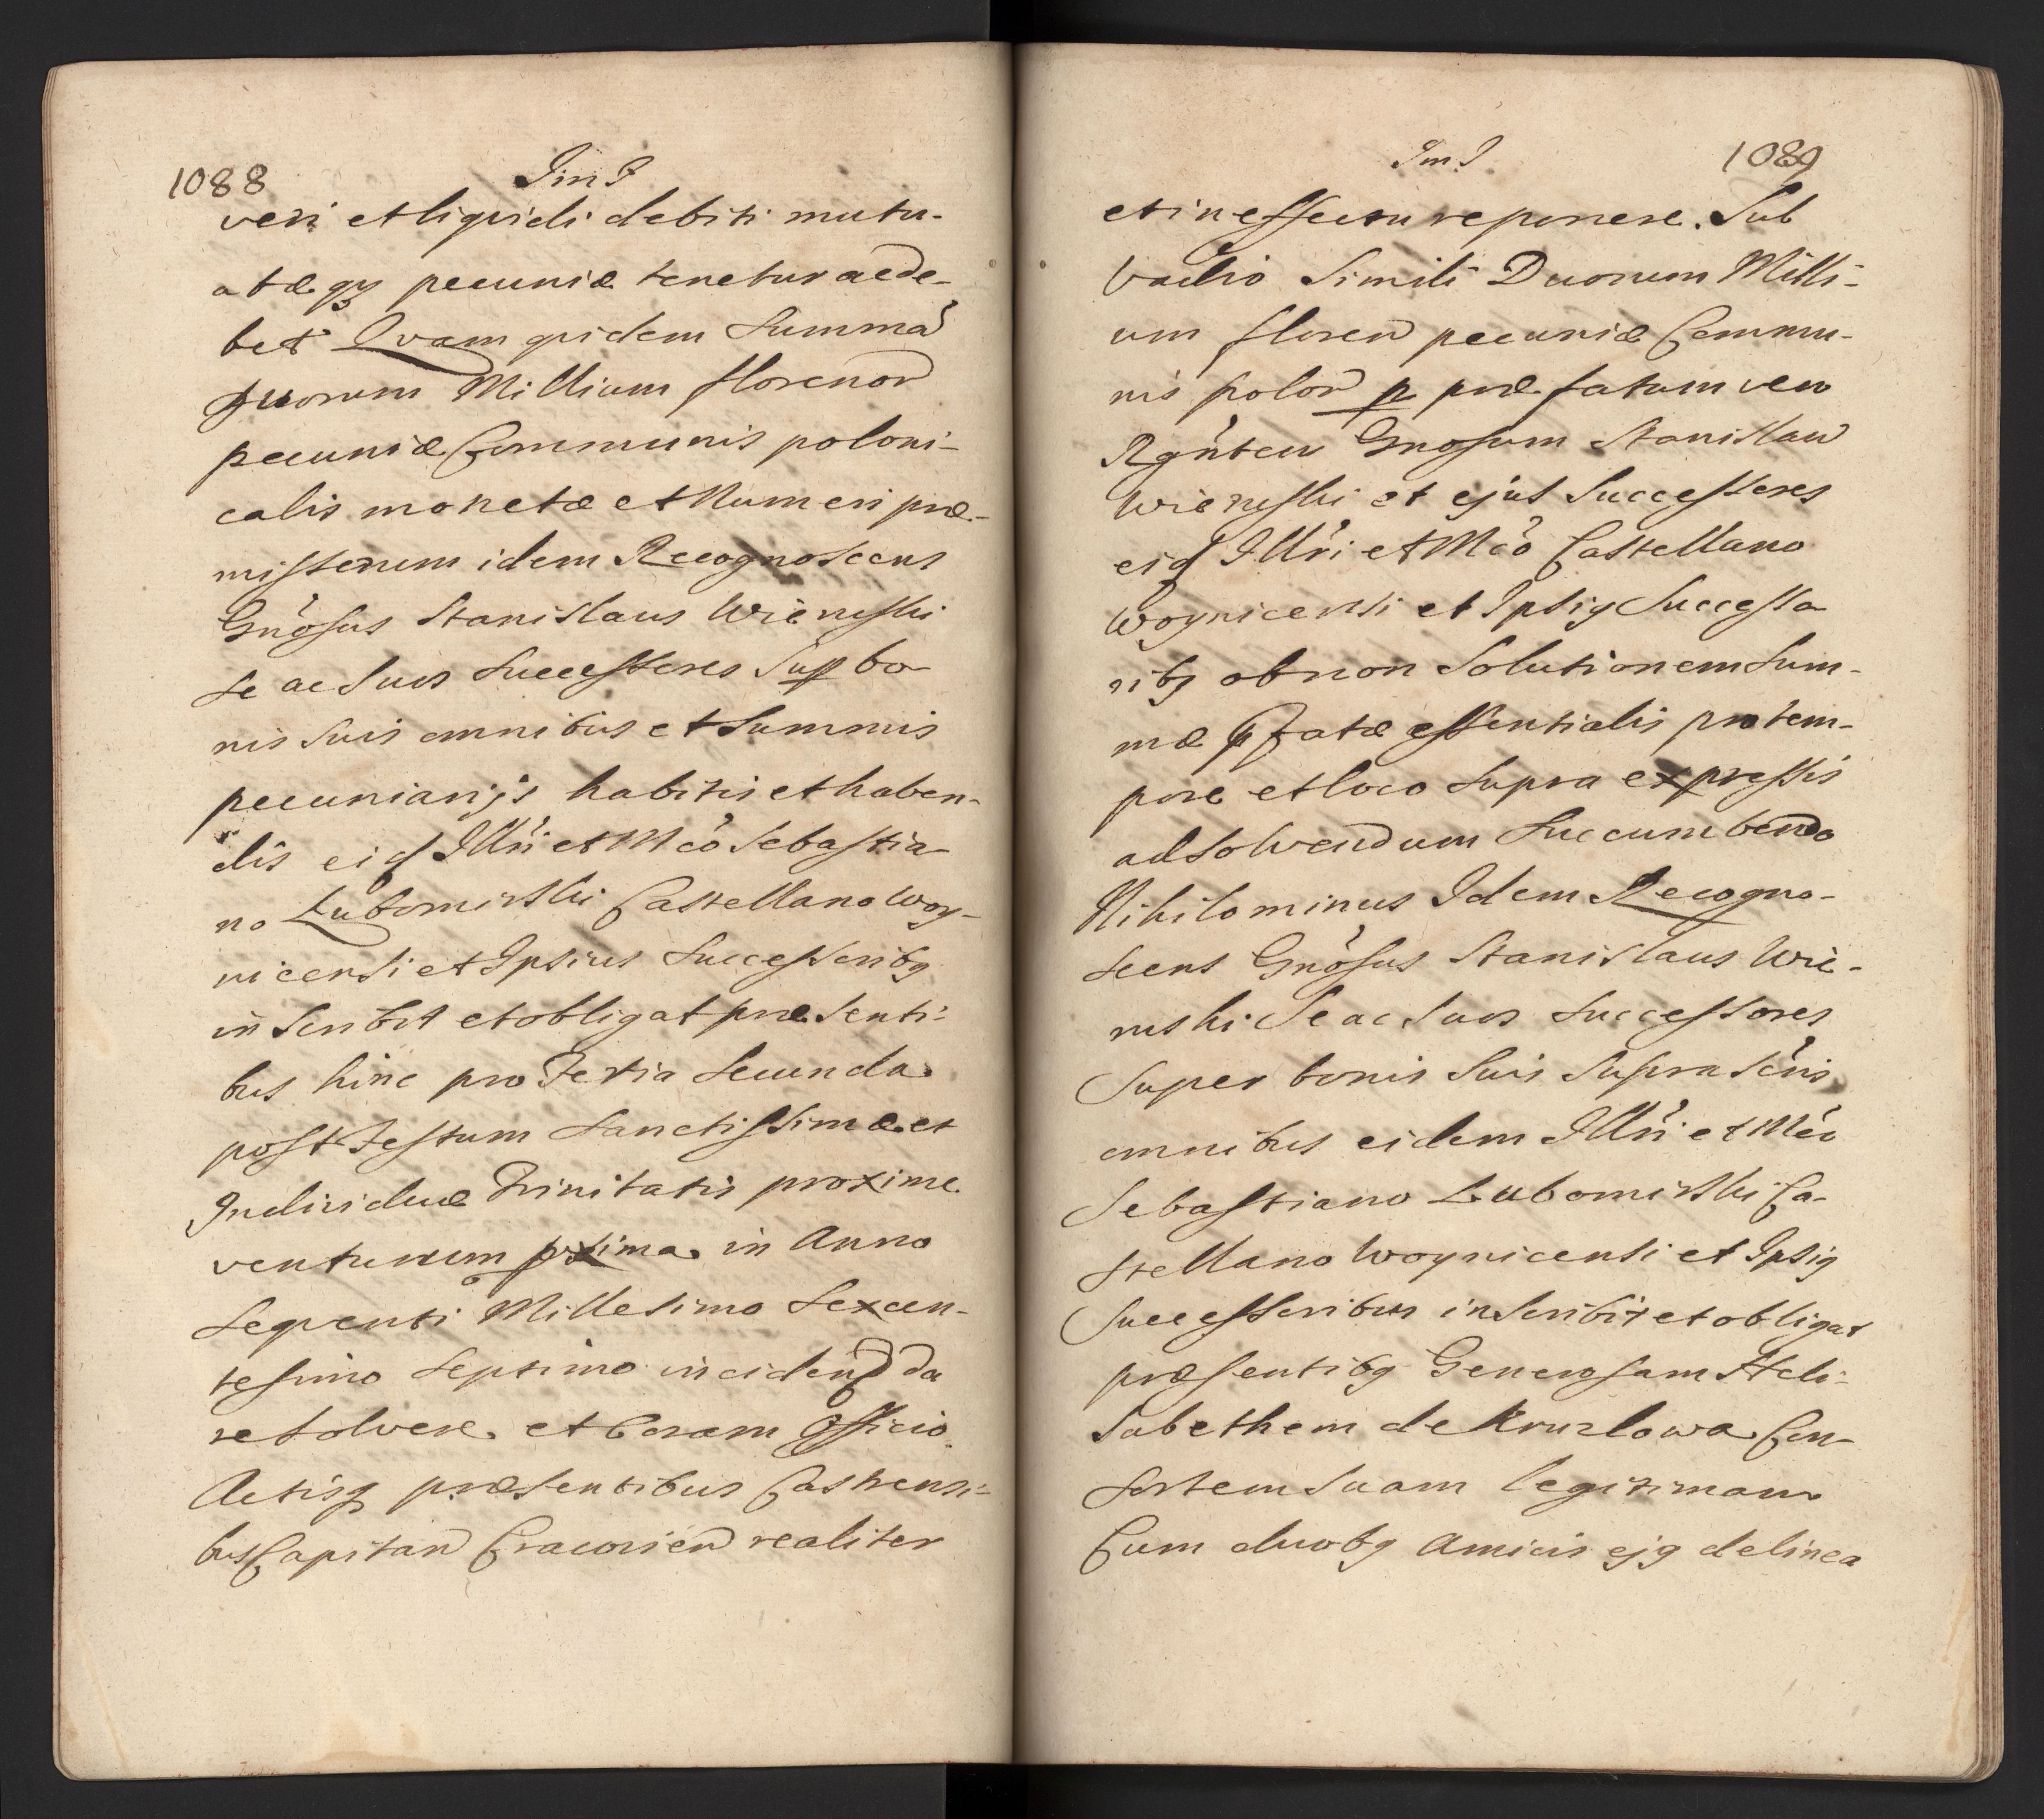 1088
veri et liquidi debiti mutu-
atæqꝫ pecuniæ tenetur ac de-
bet Qvam qvidem Summā
Duorum Millium florenor
pecuniæ Communis poloni-
calis monetæ et Numeri præ-
missorum idem Recognoscens
Gnősus Stanislaus Wierusski
Se ac Suos Successores Sup bo-
nis Suis omnibus et Summis
pecuniarijs habitis et haben-
dis eid Illri et Mco Sebastia-
no Lubomirski Castellano Woy-
nicensi et Ipsius Successoribꝫ
inscribit et obligat præsenti-
bus hinc pro Feria Secunda
post Festum Sanctissimæ et
Individuæ Trinitatis proxime
venturum pxima in Anno
Seqventi Millesimo Sexcen-
tesimo Septimo inciden da
re Solvere et Coram Officio
Actisqꝫ præsentibus Castrensi-
bus Capitan Cracovien realiter
1089
et in effectu reponere. Sub
Vadio Simili Duorum Milli-
um floren pecuniæ Commu-
nis polon p præfatum vero
Rgnten Gnosum Stanislaw
Wierusski et ejus Successores
eid Illri et Mco Castellano
Woynicensi et Ipsiꝰ Successo
ribꝫ ob non Solutionem Sum-
mæ pfatæ essentialis pro tem-
pore et loco Supra expressis
ad Solvendum Succumbendo
Nihilominus Idem Recogno-
scens Gnősus Stanislaus Wie-
ruski Se ac Suos Successores
Super bonis Suis Suprascris
omnibus eidem Illri et Mco
Sebastiano Lubomirski Ca-
stellano Woynicensi et Ipsiꝰ
Successoribus inscribit et obligat
præsentibꝫ Generosam Heli-
sabethem de Kruzlowa Con-
sortem Suam legitimam
Cum duobꝫ Amicis ejꝰ de linea